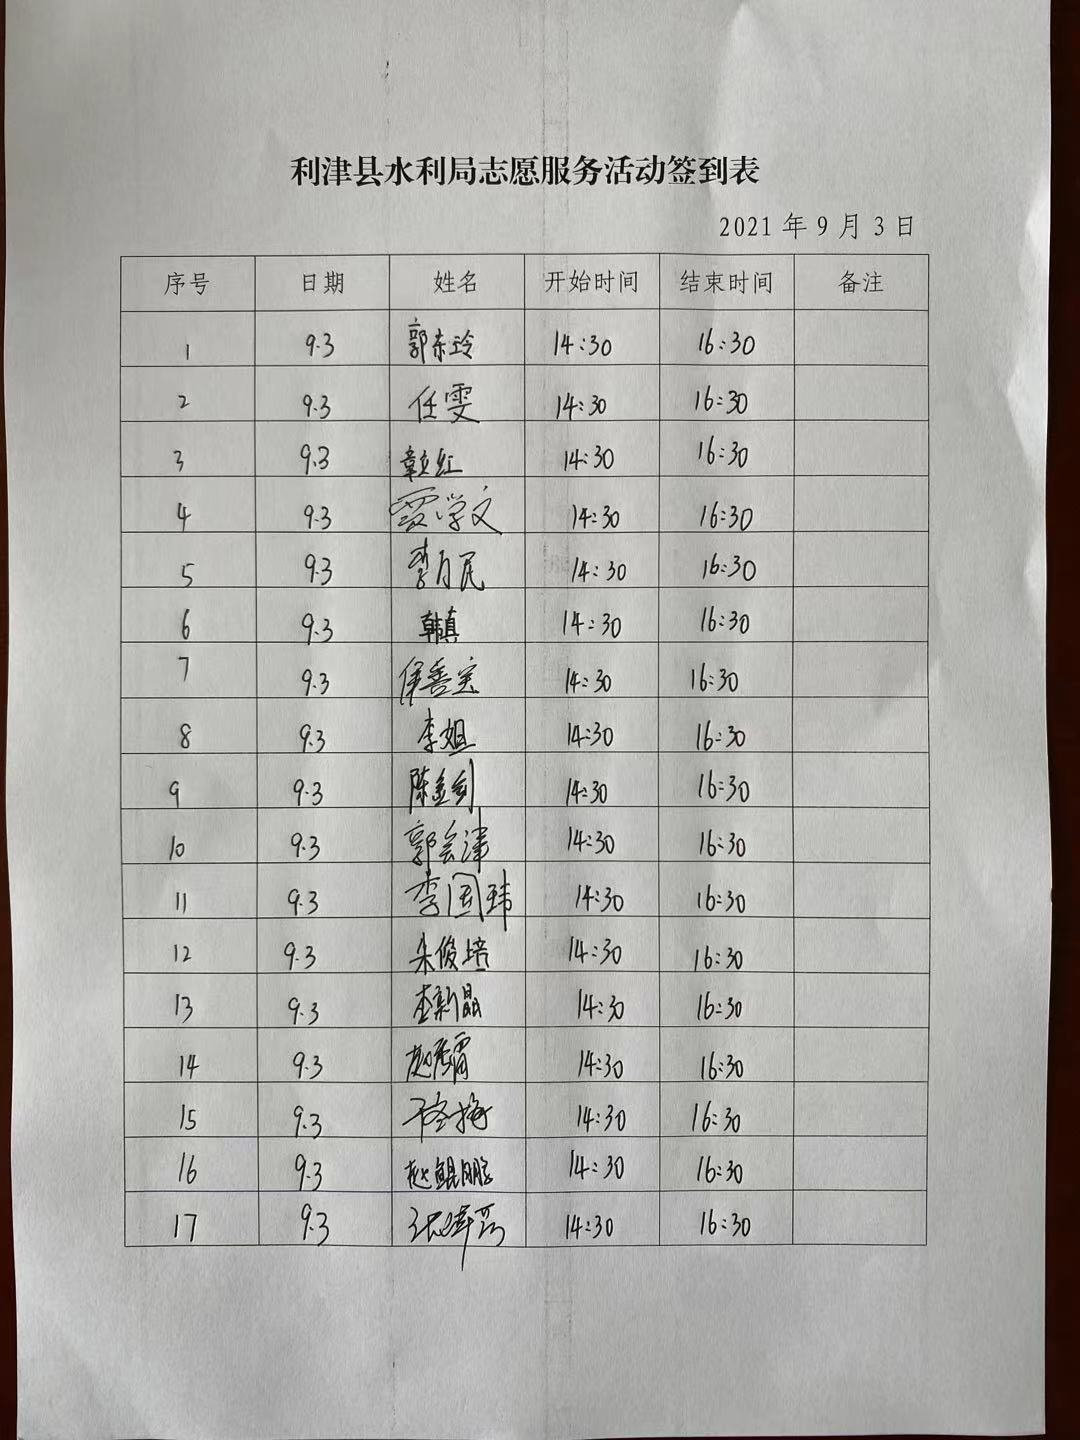 利津县水利局志愿服务活动签到表
2021 年 9 月 3 日
序号 日期 姓名 开始时间 结束时间 备注
1 9.3 郭东玲 14:30 16:30
2 9.3 任雯 14:30 16:30
3 9.3 14:30 16:30
4 9.3 贾学文 14:30 16:30
5 9.3 李月民 14:30 16:30
6 9.3 韩真 14:30 16:30
7 9.3 14:30 16:30
8 9.3 李姐 14:30 16:30
9 9.3 陈金剑 14:30 16:30
10 9.3 郭会津 14:30 16:30
11 9.3 李国玮 14:30 16:30
12 9.3 朱俊培 14:30 16:30
13 9.3 李新晶 14:30 16:30
14 9.3 14:30 16:30
15 9.3 14:30 16:30
16 9.3 赵鲲鹏 14:30 16:30
17 9.3 14:30 16:30